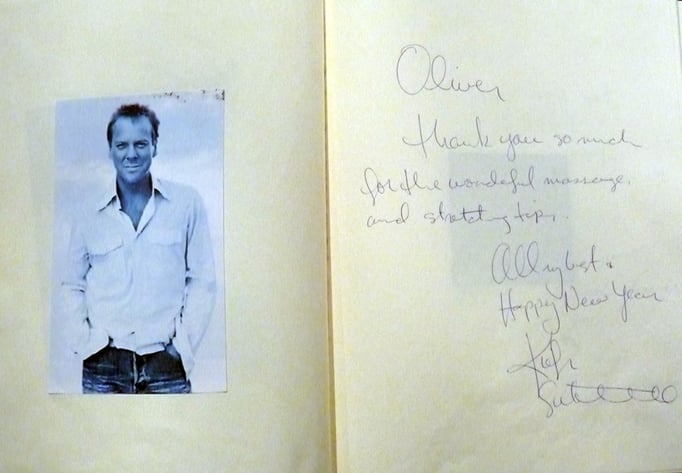 Oliver
Thank you so much
for the wonderful massage
and stretching tips.
All my best &
Happy New Year